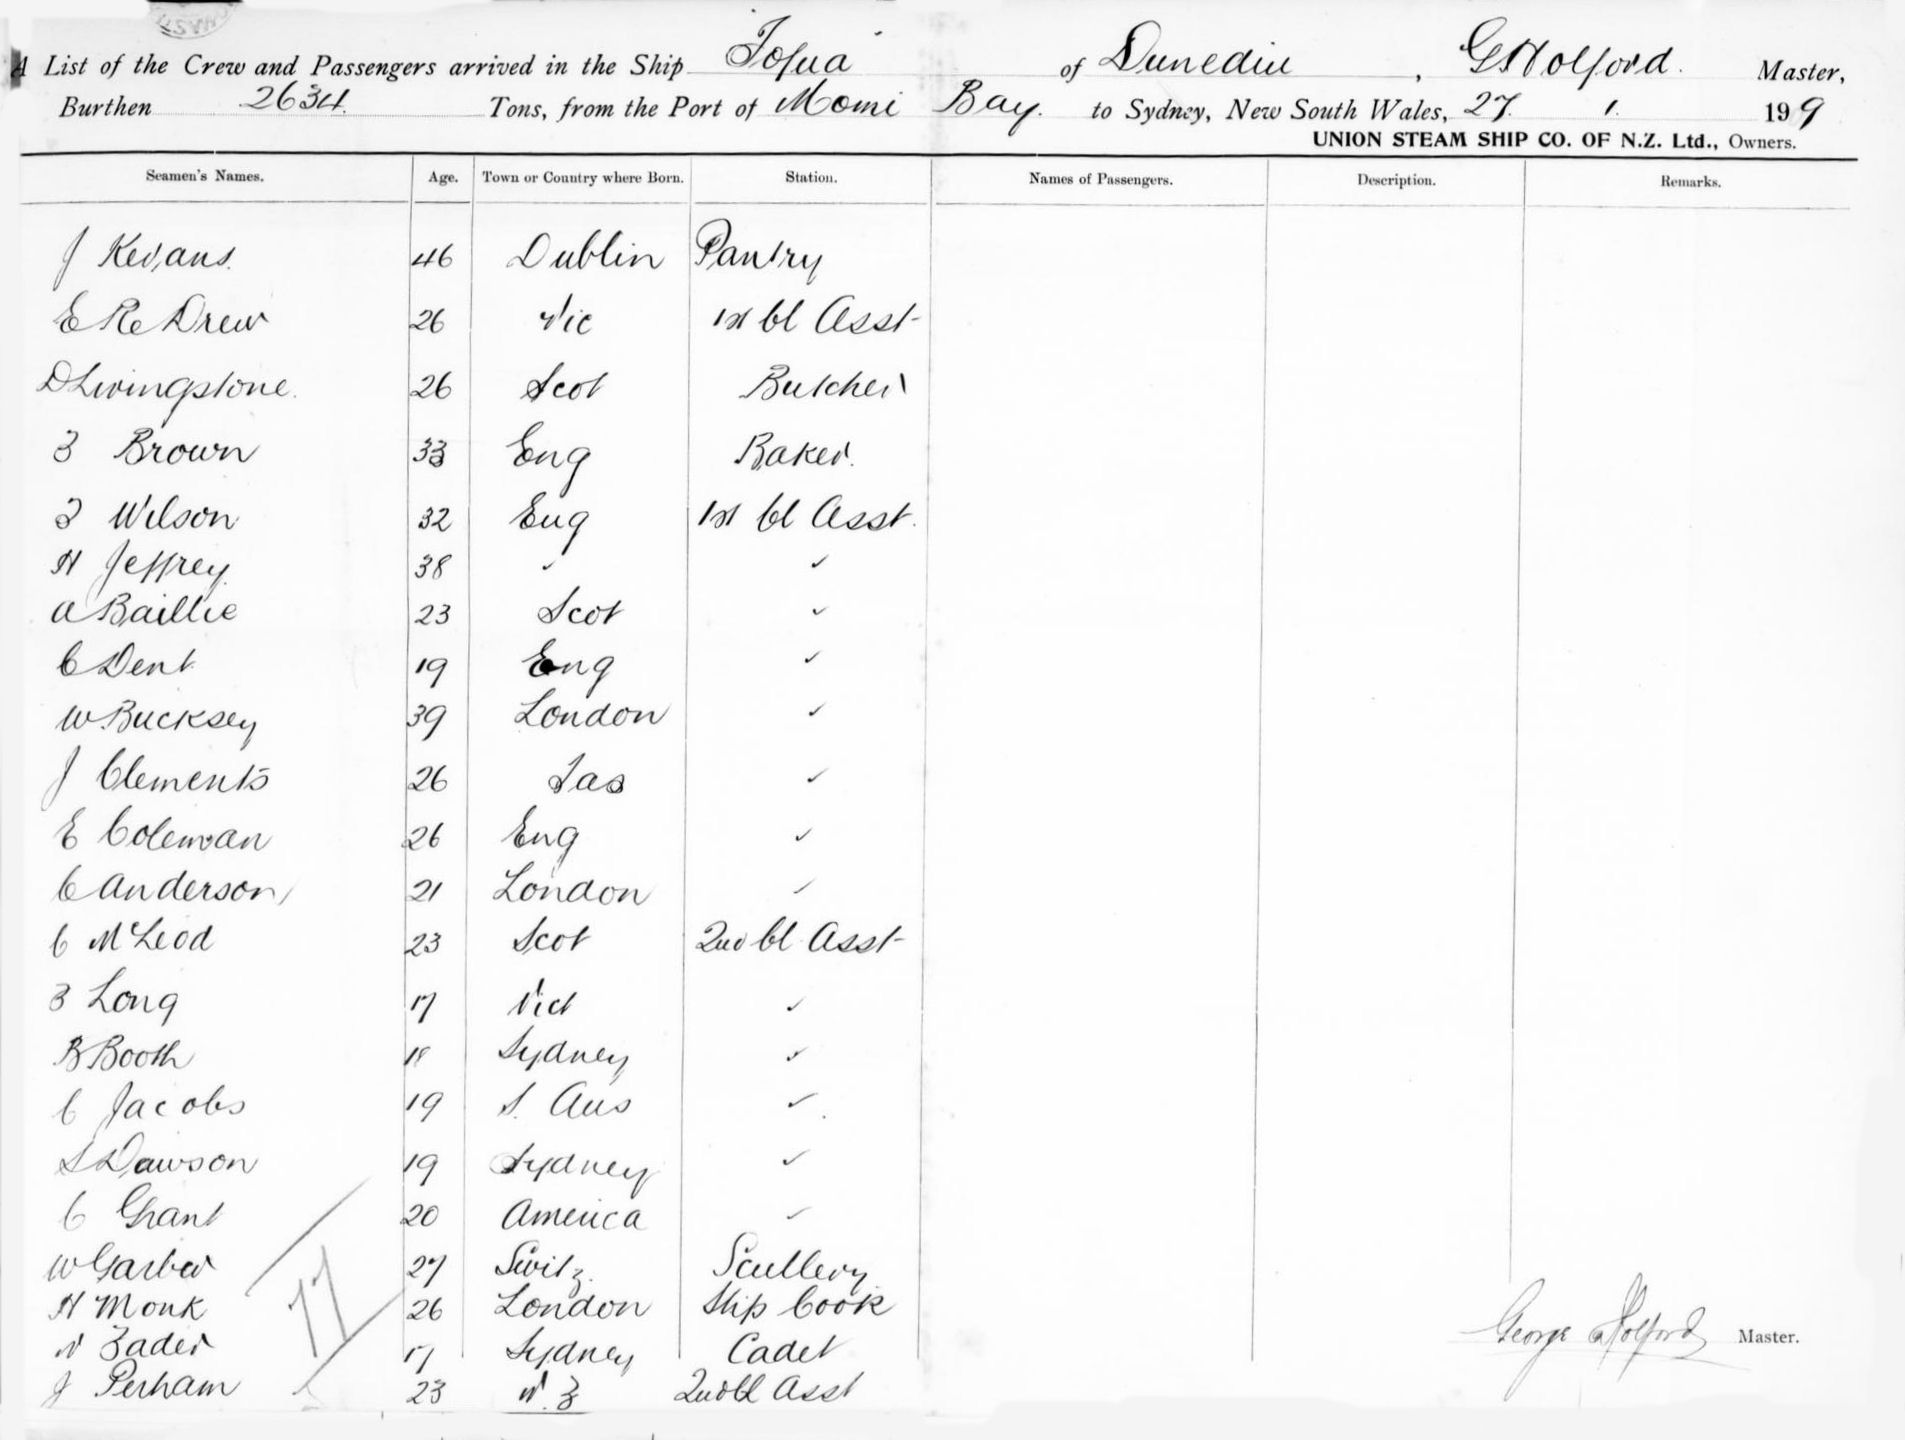 A List of the Crew and Passengers arrived in the Ship Tofua of Dunedin, G Holford. Master,
Burthen 2634 Tons, from the Port of Momi Bay. to Sydney, New South Wales, 27. 1. 1909
UNION STEAM SHIP CO. OF N.Z. Ltd., Owners.
Seamen's Names. Age. Town or Country where Born. Station. Names of Passengers. Description. Remarks.
J Kevans. 46 Dublin Pantry
E Re Drew 26 Vic 1st Cl Asst
D Livingstone. 26 Scot Butcher
Brown 33 Eng Baker.
Wilson 32 Eng 1st Cl Asst.
H Jeffrey. 38 ✓ ✓
A Baillie 23 Scot ✓
C Dent 19 Eng ✓
W Bucksey 39 London ✓
J Clements 26 Tas ✓
E Coleman 26 Eng ✓
C Anderson 21 London ✓
C McLeod 23 Scot 2nd Cl Asst
Long 17 Vict ✓
B Booth 18 Sydney ✓
C Jacobs 19 S. Aus ✓
S Dawson 19 Sydney ✓
C Grant 20 America ✓
W Garber 27 Switz. Scullery
H Monk 26 London Ship Cook
77
N Zader 17 Sydney Cadet
George Holford Master.
J Perham 23 N.Z 2nd Cl Asst